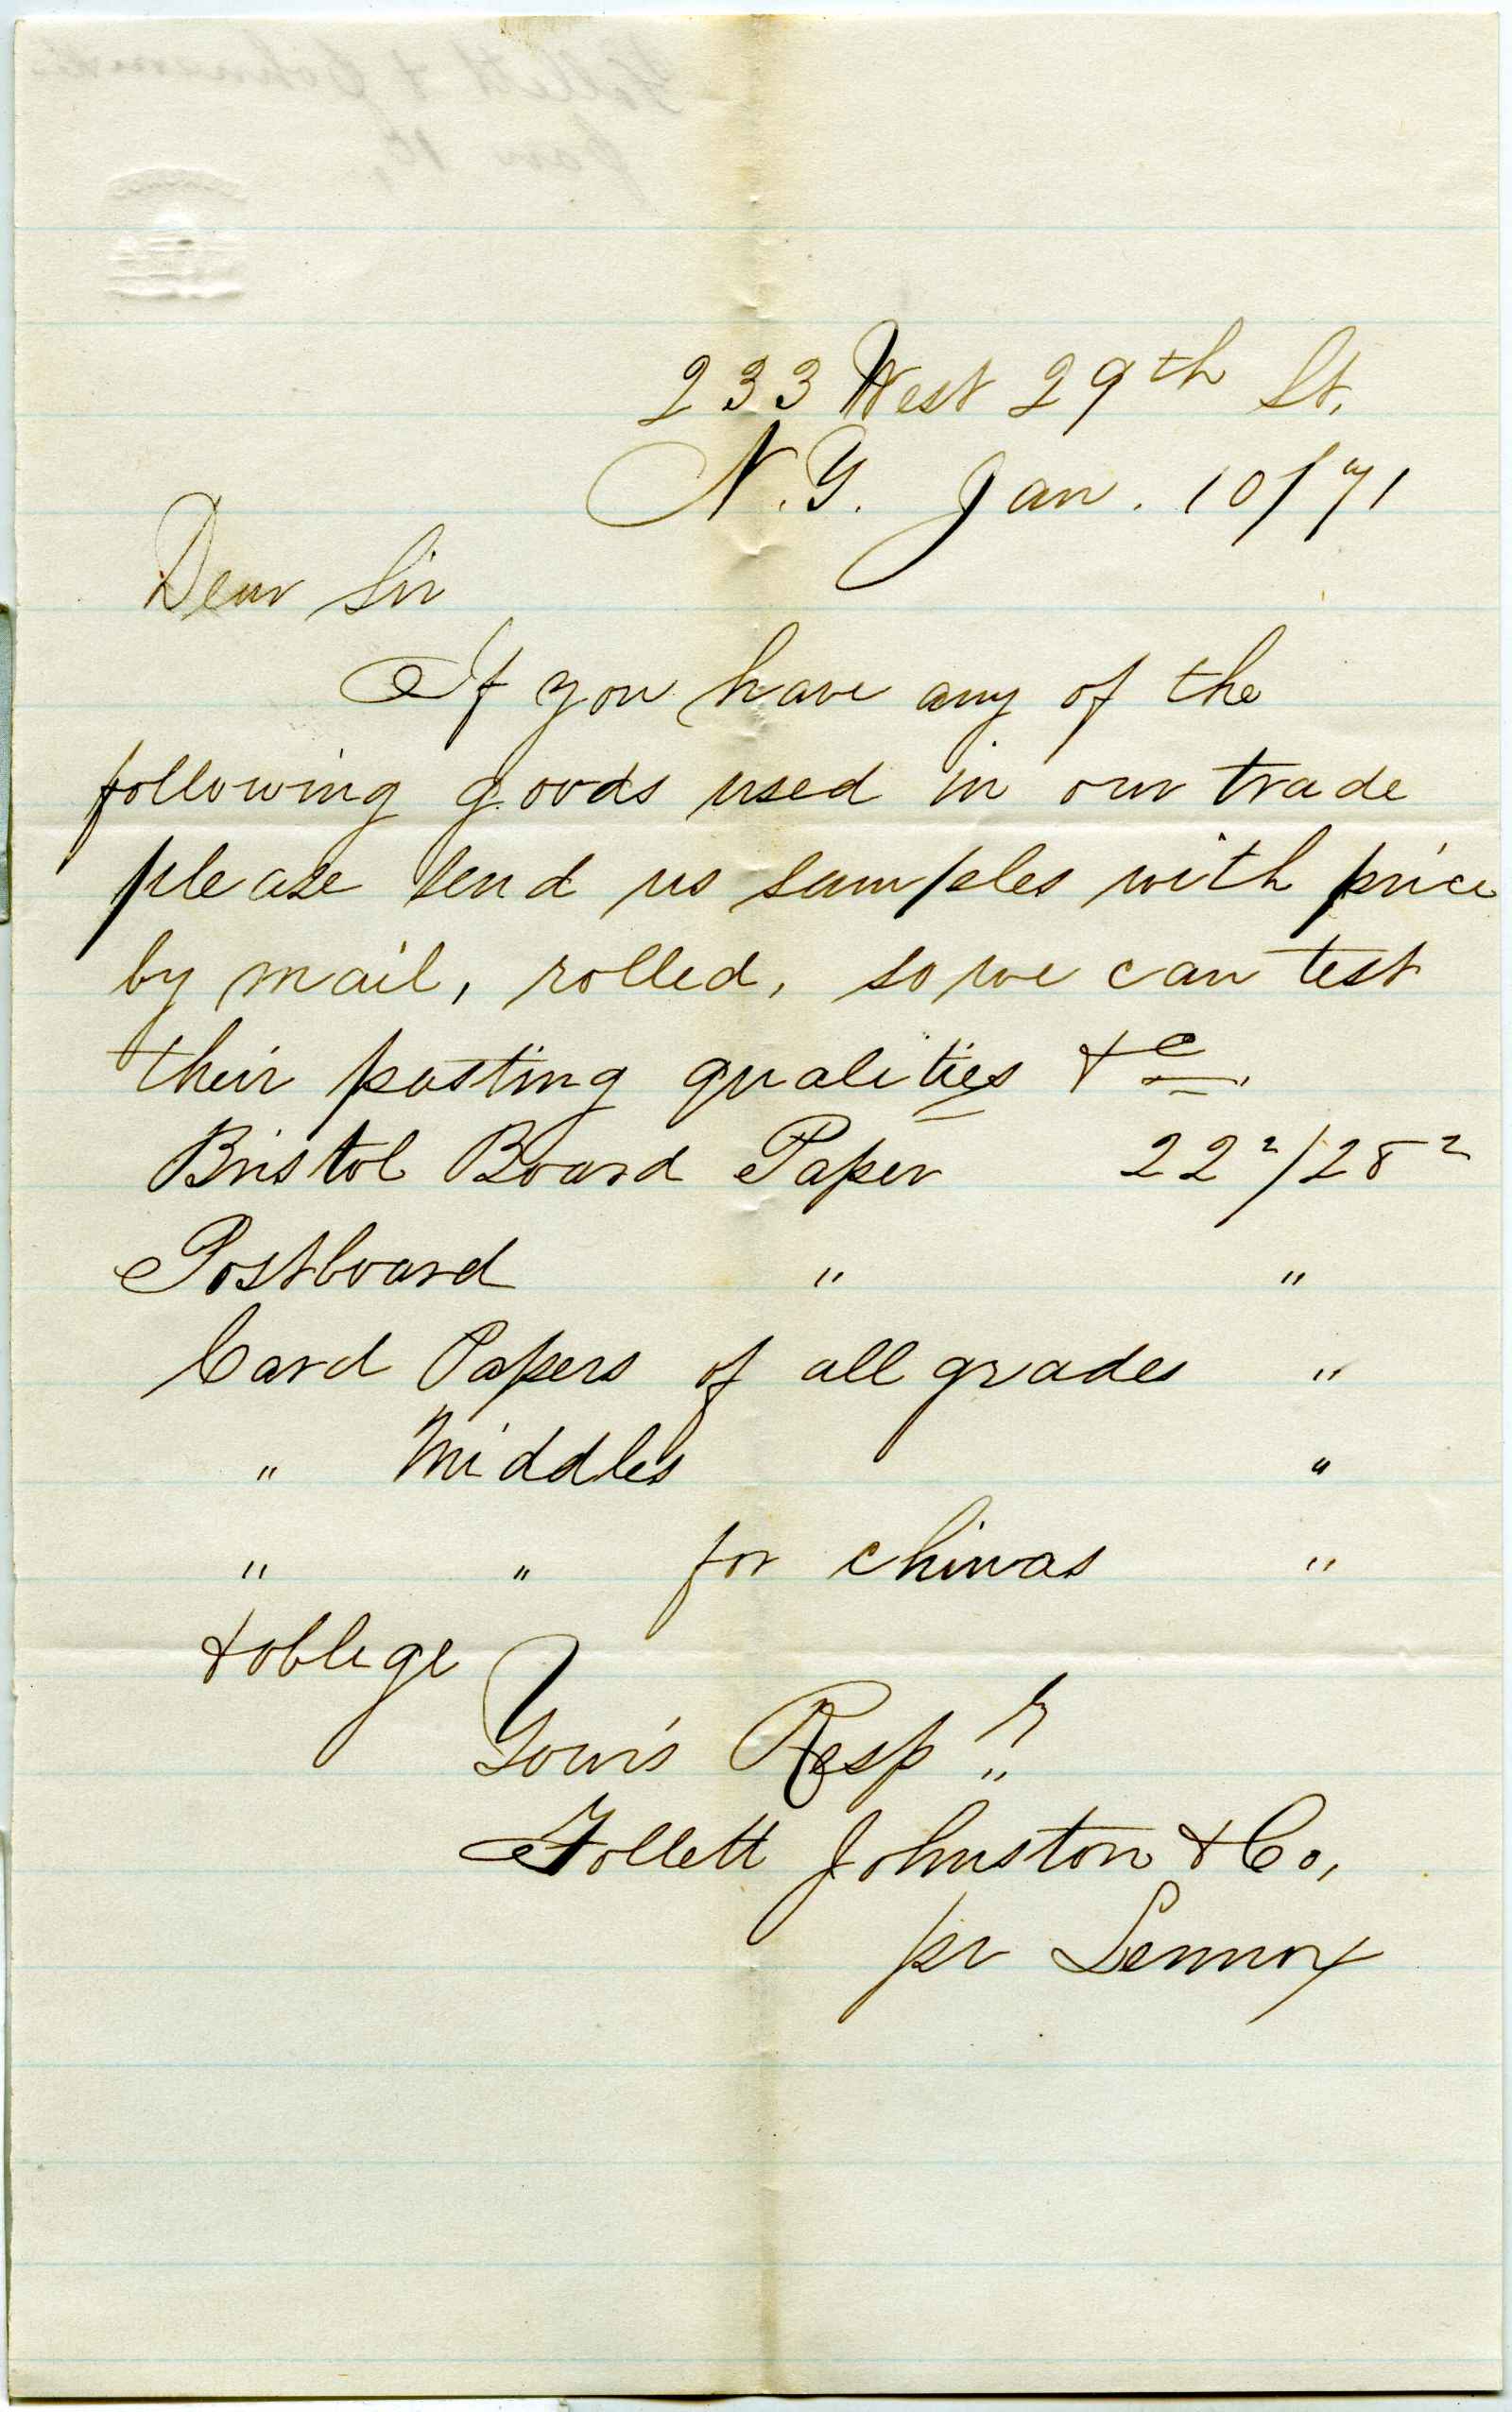 233 West 29th St.
N.Y. Jan. 10/71
Dear Sir
If you have any of the
following goods used in our trade
please send us samples with price
by mail, rolled, so we can test
their pasting qualities &c.
Bristol Board Paper 22²/28²
Postboard " "
Card Papers of all grades "
" Middles "
" " for chinas "
& oblige
Your's Resp.y
Follett Johnston & Co,
pr Lennox